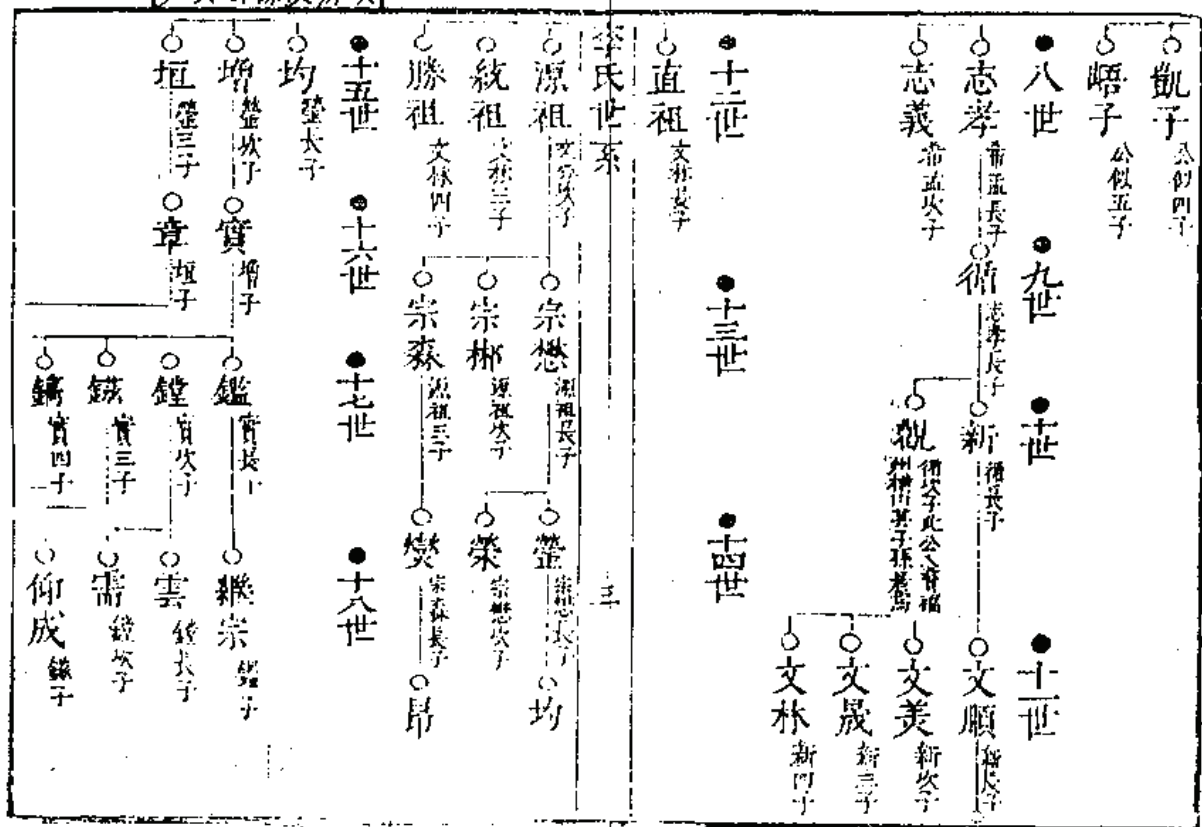 凱子 公似四子
晤子 公似五子
八世 九世 十世 十一世
志孝 希孟長子
循 志孝長子
新 循長子
文順 新長子
志義 希孟次子
觀 循次子此公入
文美 新次子
文晟 新三子
文林 新四子
十二世 十三世 十四世
直祖 文林長子
李氏世系 三
源祖 文林次子
宗懋 源祖長子
瑩 宗懋長子
均
統祖 文林三子
宗郴 源祖次子
榮 宗懋次子
勝祖 文林四子
宗森 源祖三子
爕 宗森長子
昂
十五世 十六世 十七世 十八世
均 瑩長子
增 瑩次子
實 增子
鑑 實長
繼宗 鑑子
垣 瑩三子
章 垣子
鏜 實次子
雲 鏜長子
實三子
需 鏜次子
實四子
仰成